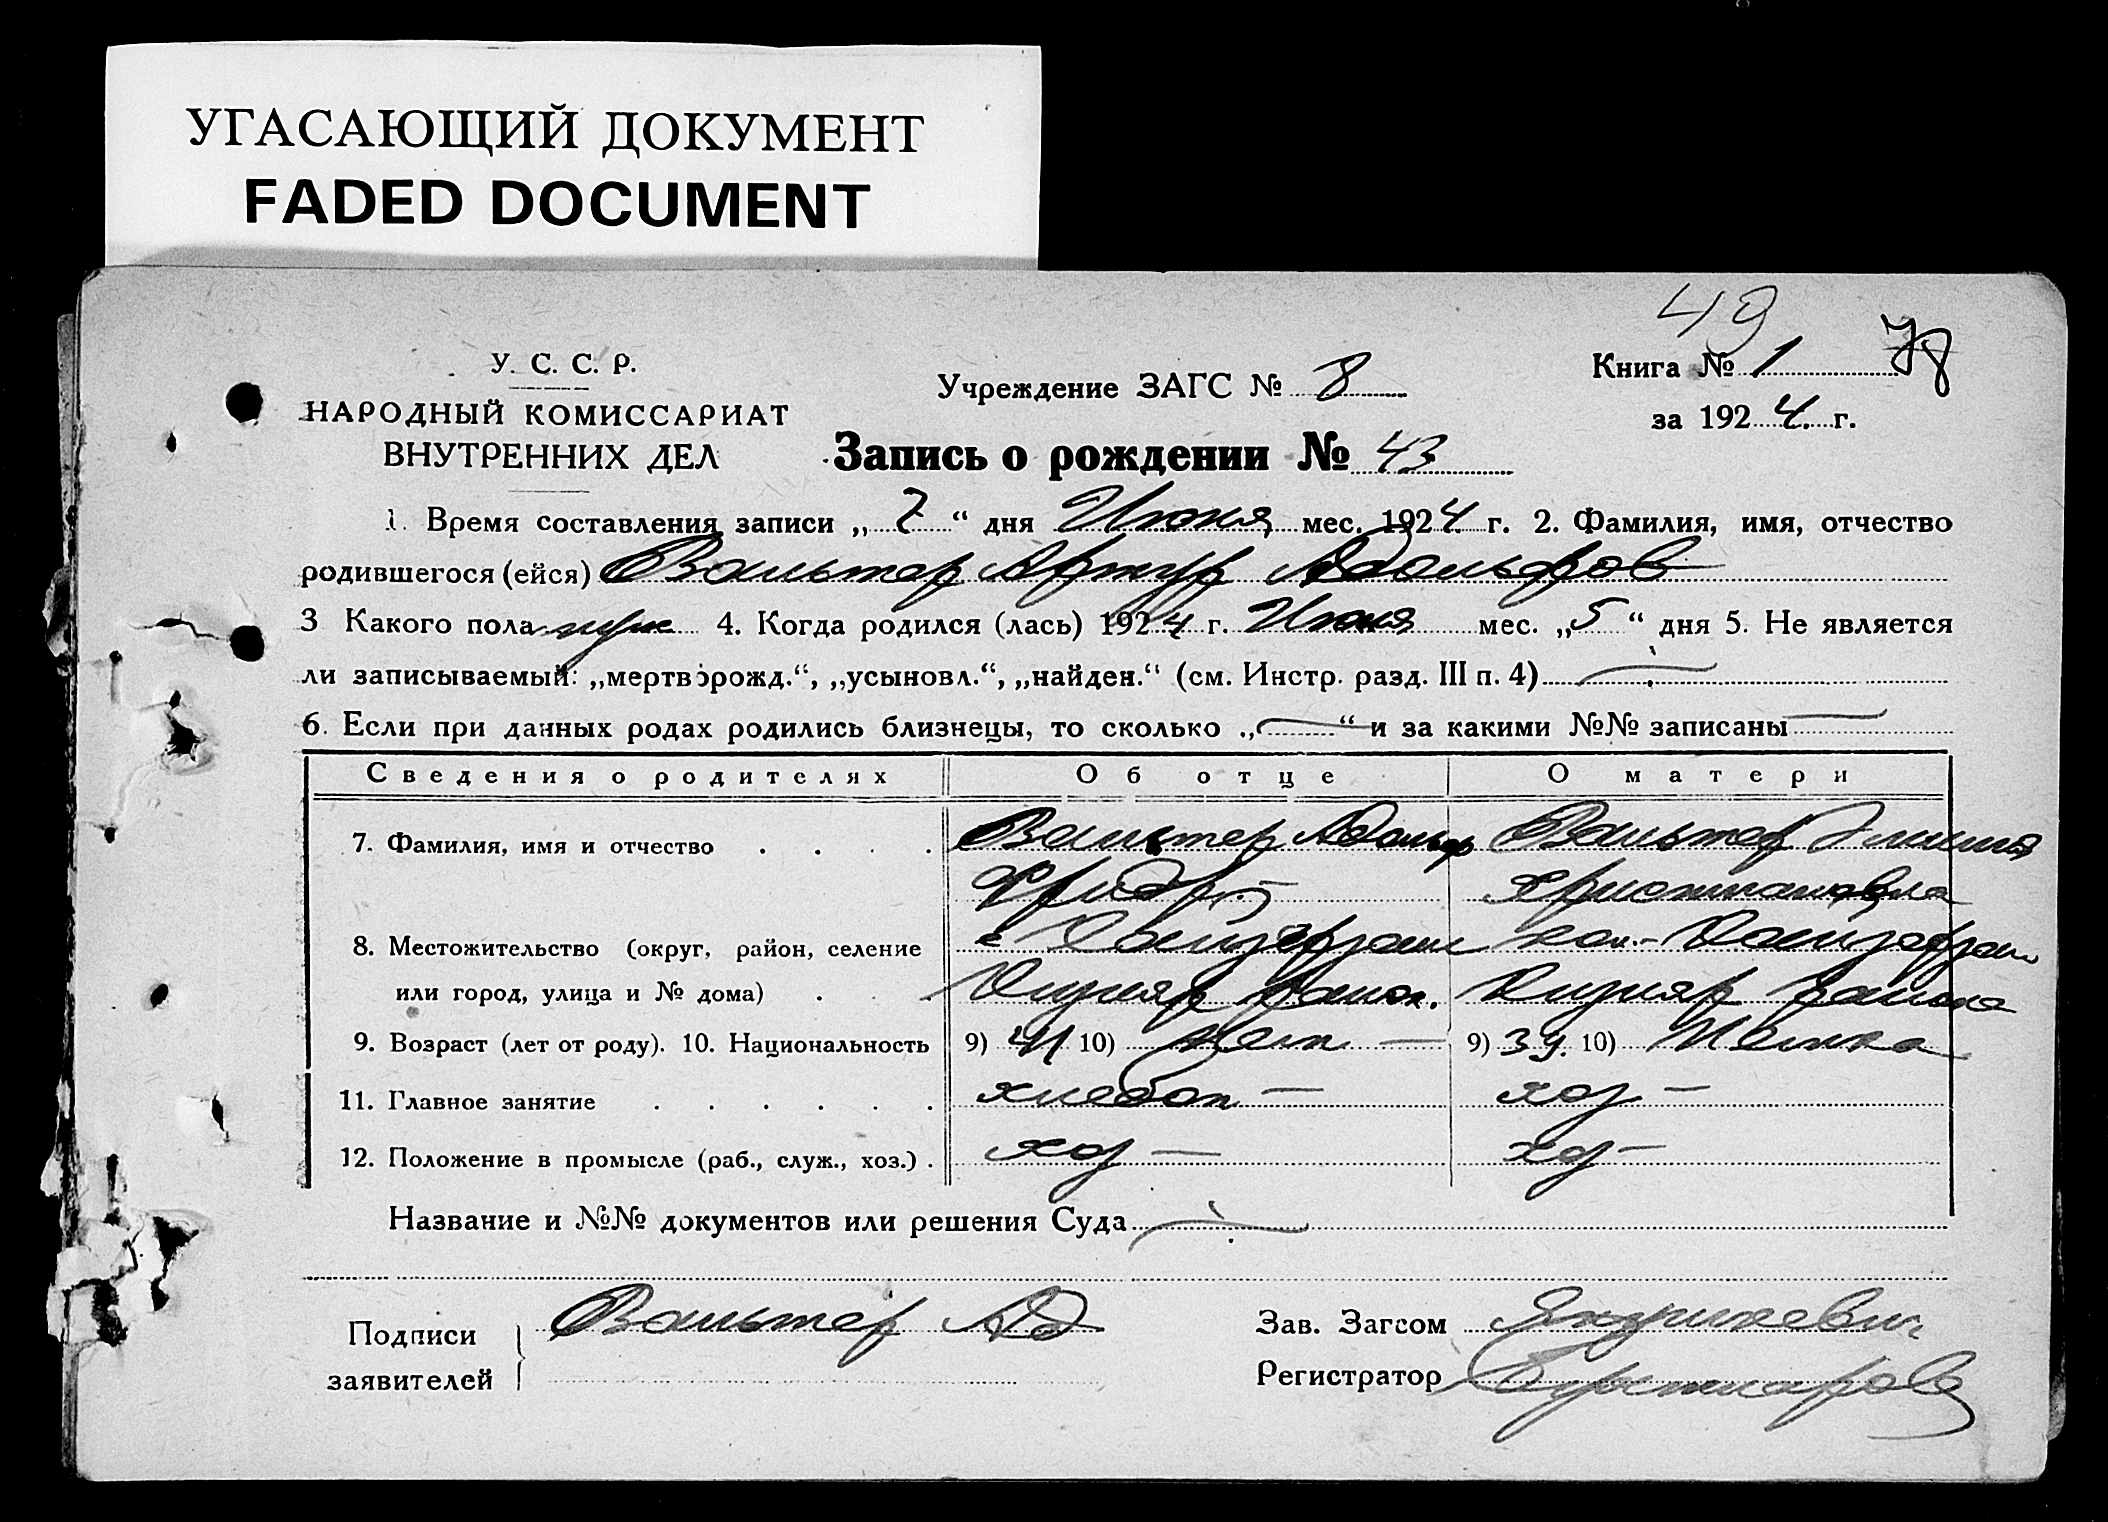 УГАСАЮЩИЙ ДОКУМЕНТ
FADED DOCUMENT
49
У. С. С. Р.
НАРОДНЫЙ КОМИССАРИАТ
ВНУТРЕННИХ ДЕЛ
Учреждение ЗАГС № 8
Книга № 1 78
за 1924 г.
Запись о рождении № 43
1. Время составления записи „7“ дня Июня мес. 1924 г. 2. Фамилия, имя, отчество
родившегося (ейся) Вальтер Артур Адольфов
3 Какого пола муж 4. Когда родился (лась) 1924 г. Июня мес. „5“ дня 5. Не является
ли записываемый: „мертворожд.“, „усыновл.“, „найден.“ (см. Инстр. разд. III п. 4)
6. Если при данных родах родились близнецы, то сколько „—“ и за какими №№ записаны —
Сведения о родителях Об отце О матери
7. Фамилия, имя и отчество Вальтер Адольф Вальтер
Фридр. Христиановна
8. Местожительство (округ, район, селение
или город, улица и № дома)
9. Возраст (лет от роду). 10. Национальность 9) 41 10) Нем 9) 39. 10) Немка
11. Главное занятие хлебоп — хоз —
12. Положение в промысле (раб., служ., хоз.) хоз — хоз —
Название и №№ документов или решения Суда
Подписи заявителей Вальтер Ад
Зав. Загсом
Регистратор